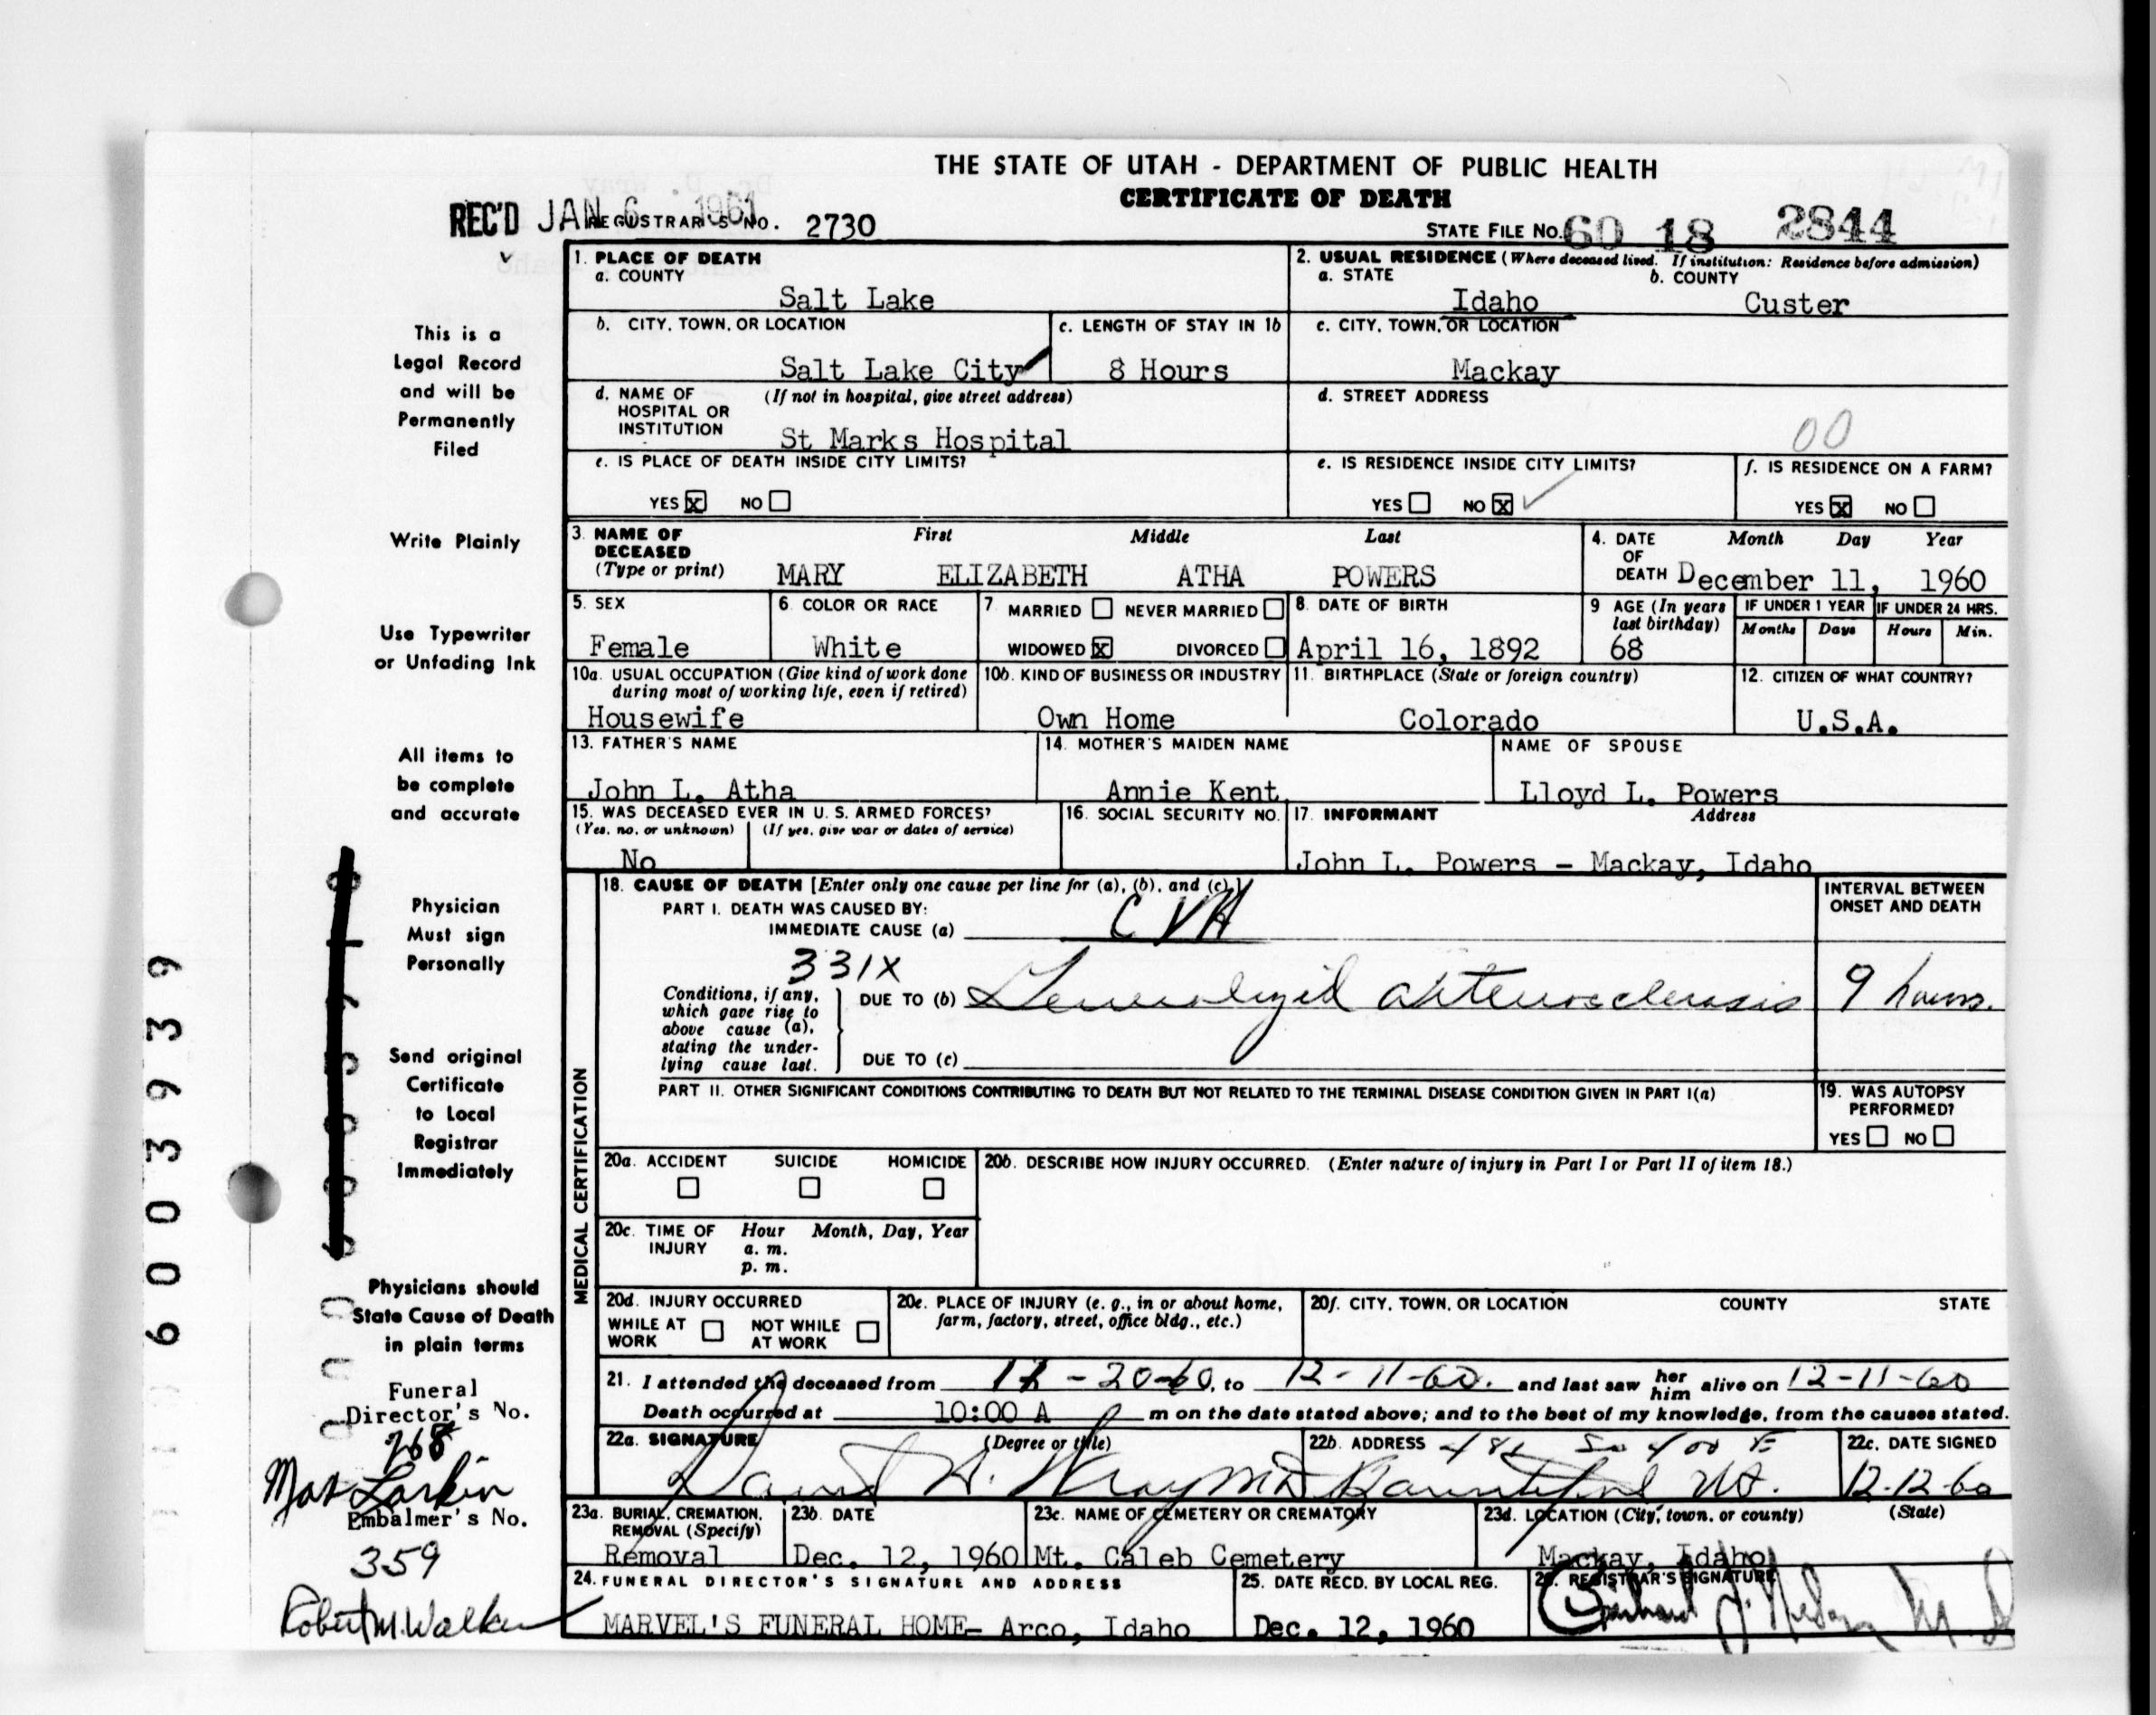 THE STATE OF UTAH - DEPARTMENT OF PUBLIC HEALTH
CERTIFICATE OF DEATH
REC'D JAN 6 1961 REGISTRAR'S NO. 2730
STATE FILE NO. 60 18 2844
1. PLACE OF DEATH
a. COUNTY
Salt Lake
2. USUAL RESIDENCE (Where deceased lived. If institution: Residence before admission)
a. STATE b. COUNTY
Idaho Custer
b. CITY, TOWN, OR LOCATION
Salt Lake City
c. LENGTH OF STAY IN 1b
8 Hours
c. CITY, TOWN, OR LOCATION
Mackay
d. NAME OF HOSPITAL OR INSTITUTION (If not in hospital, give street address)
St Marks Hospital
d. STREET ADDRESS
00
e. IS PLACE OF DEATH INSIDE CITY LIMITS?
YES X NO
e. IS RESIDENCE INSIDE CITY LIMITS?
YES NO X
f. IS RESIDENCE ON A FARM?
YES X NO
3. NAME OF DECEASED (Type or print) First Middle Last
MARY ELIZABETH ATHA POWERS
4. DATE OF DEATH Month Day Year
December 11, 1960
5. SEX
Female
6. COLOR OR RACE
White
7 MARRIED NEVER MARRIED
WIDOWED X DIVORCED
8. DATE OF BIRTH
April 16, 1892
9 AGE (In years last birthday)
68
IF UNDER 1 YEAR IF UNDER 24 HRS.
Months Days Hours Min.
10a. USUAL OCCUPATION (Give kind of work done during most of working life, even if retired)
Housewife
10b. KIND OF BUSINESS OR INDUSTRY
Own Home
11. BIRTHPLACE (State or foreign country)
Colorado
12. CITIZEN OF WHAT COUNTRY?
U.S.A.
13. FATHER'S NAME
John L. Atha
14. MOTHER'S MAIDEN NAME
Annie Kent
NAME OF SPOUSE
Lloyd L. Powers
15. WAS DECEASED EVER IN U. S. ARMED FORCES?
(Yes, no, or unknown) (If yes, give war or dates of service)
No
16. SOCIAL SECURITY NO.
17. INFORMANT Address
John L. Powers - Mackay, Idaho
MEDICAL CERTIFICATION
18. CAUSE OF DEATH [Enter only one cause per line for (a), (b), and (c).]
PART I. DEATH WAS CAUSED BY:
IMMEDIATE CAUSE (a) CVA
INTERVAL BETWEEN ONSET AND DEATH
331X
Conditions, if any, which gave rise to above cause (a), stating the underlying cause last.
DUE TO (b) Generalized arteriosclerosis
9 hours.
DUE TO (c)
PART II. OTHER SIGNIFICANT CONDITIONS CONTRIBUTING TO DEATH BUT NOT RELATED TO THE TERMINAL DISEASE CONDITION GIVEN IN PART I(a)
19. WAS AUTOPSY PERFORMED?
YES NO
20a. ACCIDENT SUICIDE HOMICIDE
20b. DESCRIBE HOW INJURY OCCURRED. (Enter nature of injury in Part I or Part II of item 18.)
20c. TIME OF INJURY Hour Month, Day, Year
a. m.
p. m.
20d. INJURY OCCURRED
WHILE AT WORK NOT WHILE AT WORK
20e. PLACE OF INJURY (e. g., in or about home, farm, factory, street, office bldg., etc.)
20f. CITY, TOWN, OR LOCATION COUNTY STATE
21. I attended the deceased from -20-60, to 12-11-60. and last saw her him alive on 12-11-60
Death occurred at 10:00 A m on the date stated above; and to the best of my knowledge, from the causes stated.
22a. SIGNATURE (Degree or title)
David H. Wray MD
22b. ADDRESS
So 400 E
Bountiful Ut.
22c. DATE SIGNED
12-12-60
23a. BURIAL, CREMATION, REMOVAL (Specify)
Removal
23b. DATE
Dec. 12, 1960
23c. NAME OF CEMETERY OR CREMATORY
Mt. Caleb Cemetery
23d. LOCATION (City, town, or county) (State)
Mackay, Idaho
24. FUNERAL DIRECTOR'S SIGNATURE AND ADDRESS
MARVEL'S FUNERAL HOME- Arco, Idaho
25. DATE RECD. BY LOCAL REG.
Dec. 12, 1960
26. REGISTRAR'S SIGNATURE
This is a
Legal Record
and will be
Permanently
Filed
Write Plainly
Use Typewriter
or Unfading Ink
All items to
be complete
and accurate
Physician
Must sign
Personally
Send original
Certificate
to Local
Registrar
Immediately
Physicians should
State Cause of Death
in plain terms
Funeral
Director's No.
768
Max Larkin
Embalmer's No.
359
Robert M. Walker
6003939